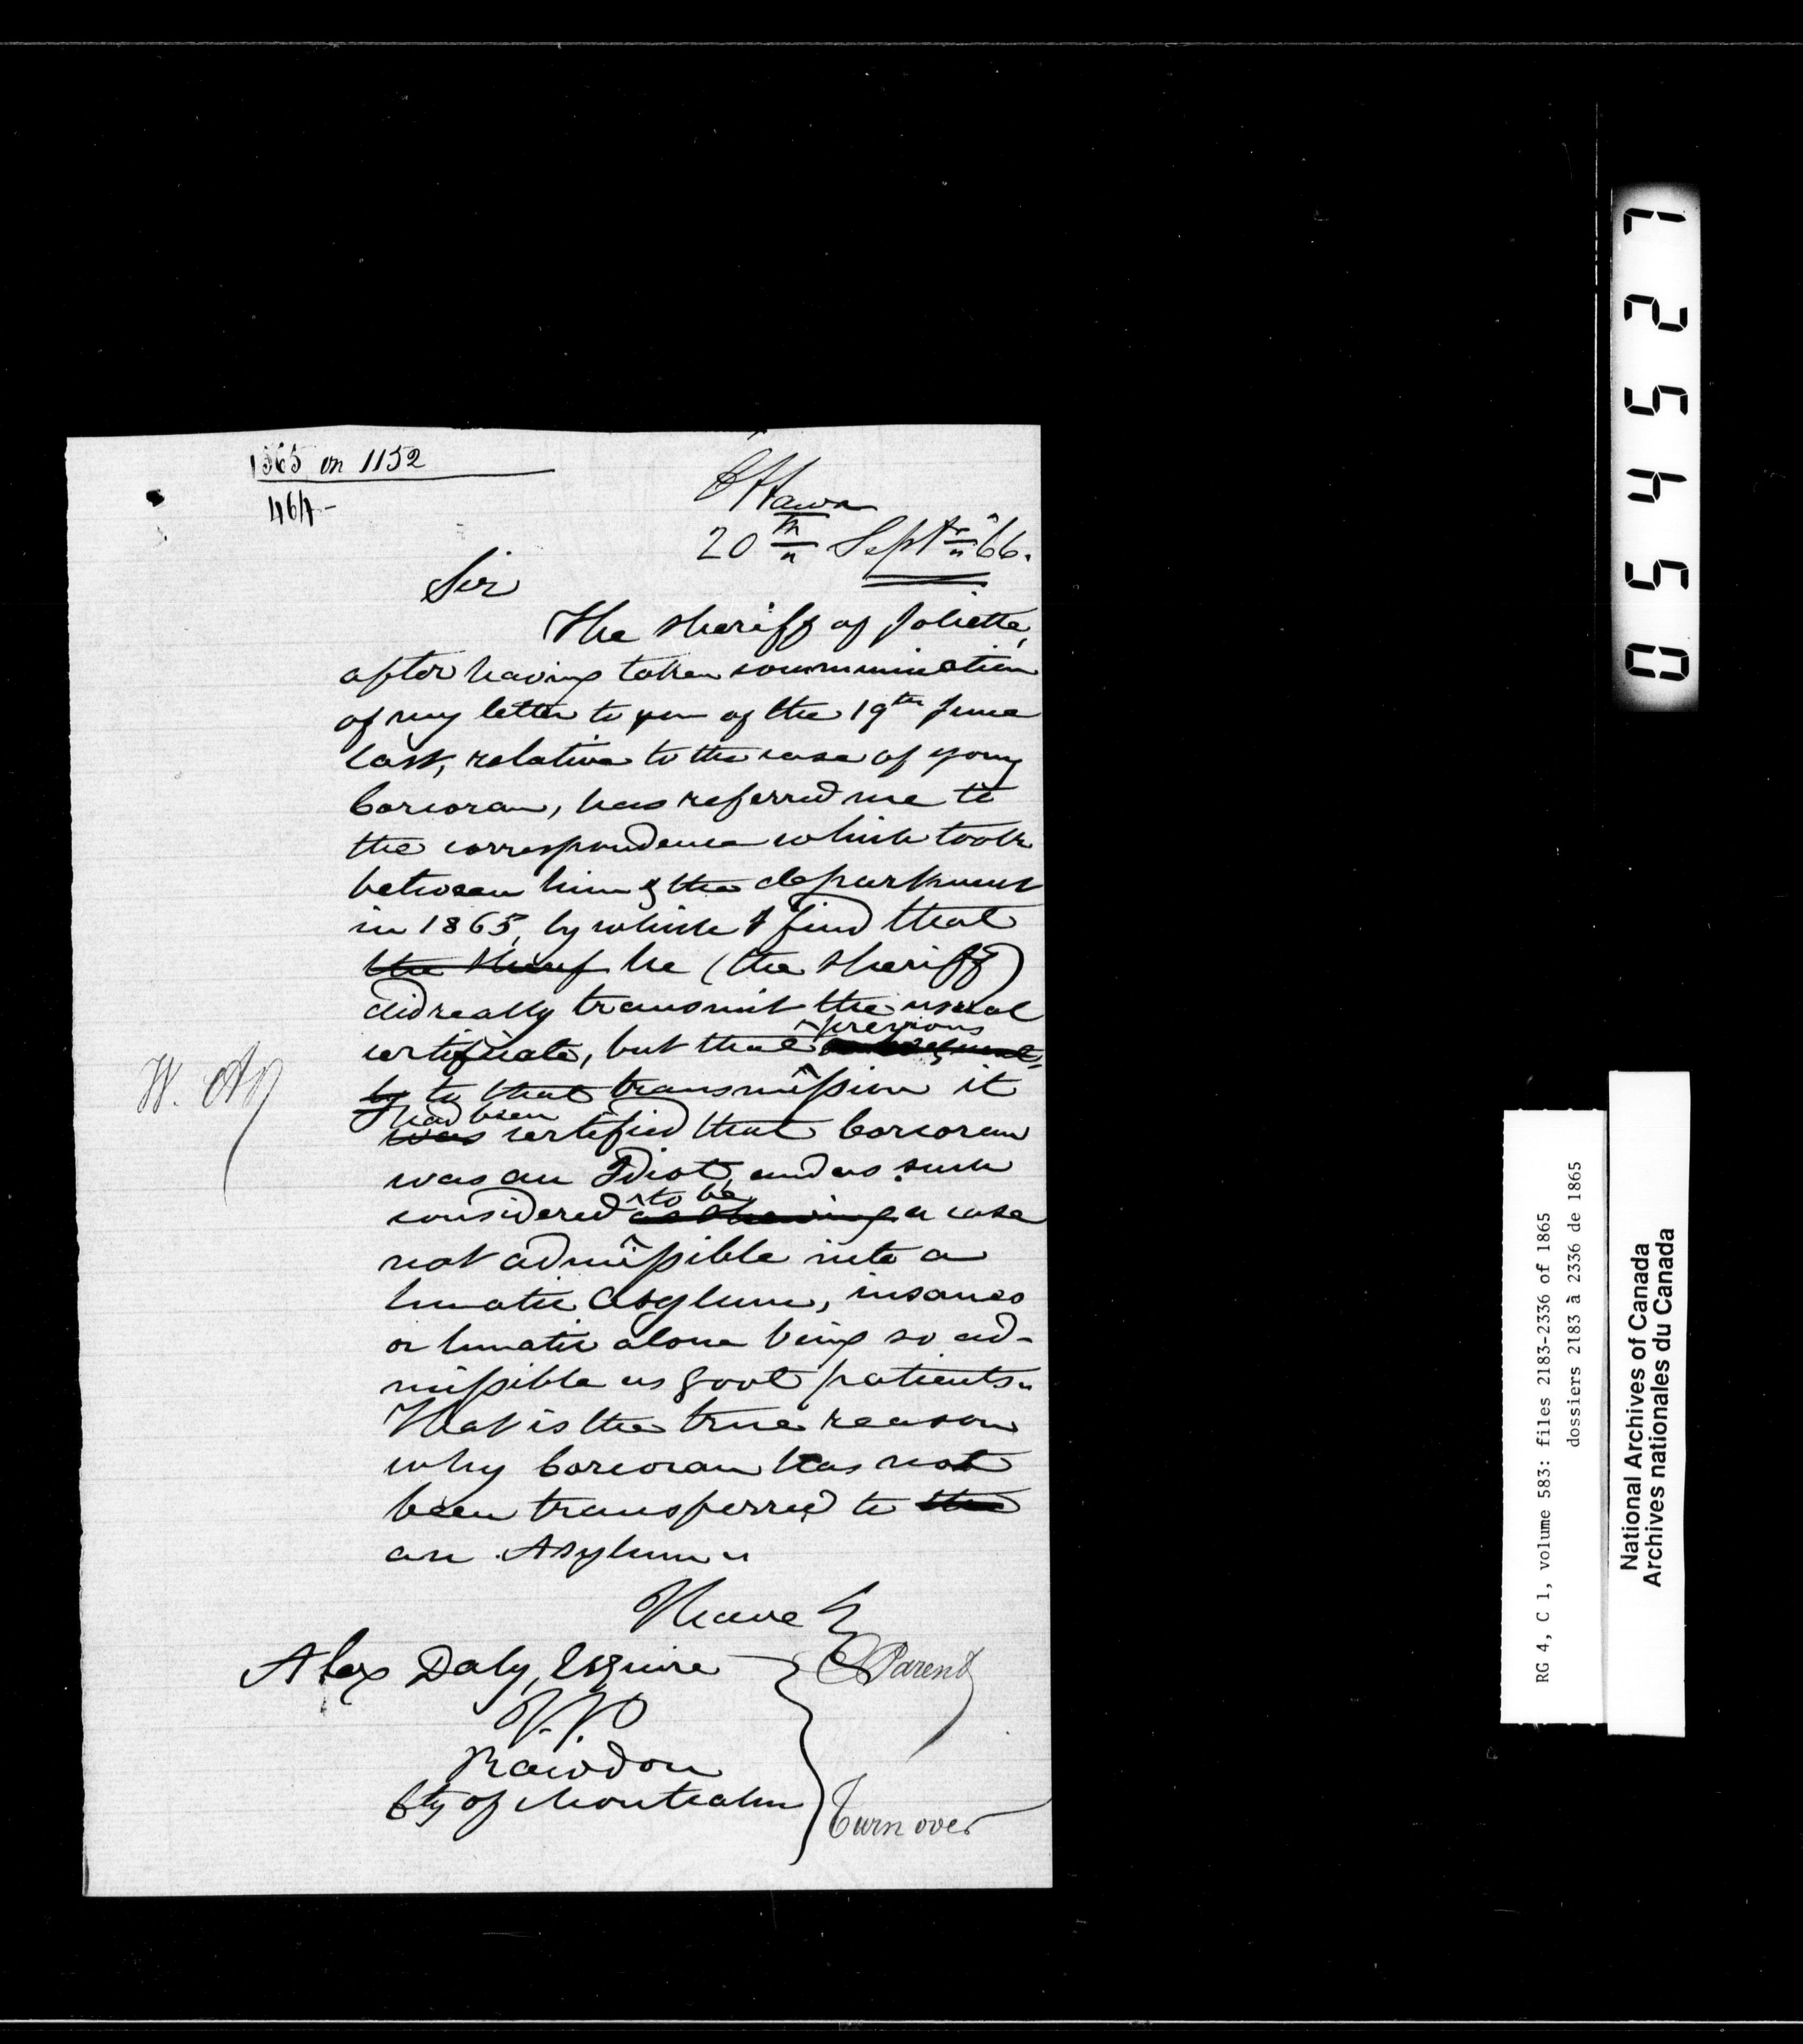 1565 on 1152
464-
Ottawa
20th Septr 66.
Sir
The Sheriff of Joliette,
after having taken communication
of my letter to you of the 19th June
last, relative to the case of young
Corcoran, has referred me to
the correspondence which took
between him & the department
in 1865, by which I find that
the Sheriff he (the Sheriff)
did really transmit the usual
certificate, but that previous
by to that transmission it
had been
was certified that Corcoran
was an Idiot, and as such
considered to be a case
not admissible into a
lunatic Asylum, insanes
or lunatic alone being so ad-
missible as govt patients.
That is the true reason
why Corcoran has not
been transferred to the
an Asylum
I have &
Alex Daly, Esquire
E Parent
J.P.
Rawdon
Cty of Montcalm
Turn over
054527
RG 4, C 1, volume 583: files 2183-2336 of 1865
dossiers 2183 à 2336 de 1865
National Archives of Canada
Archives nationales du Canada